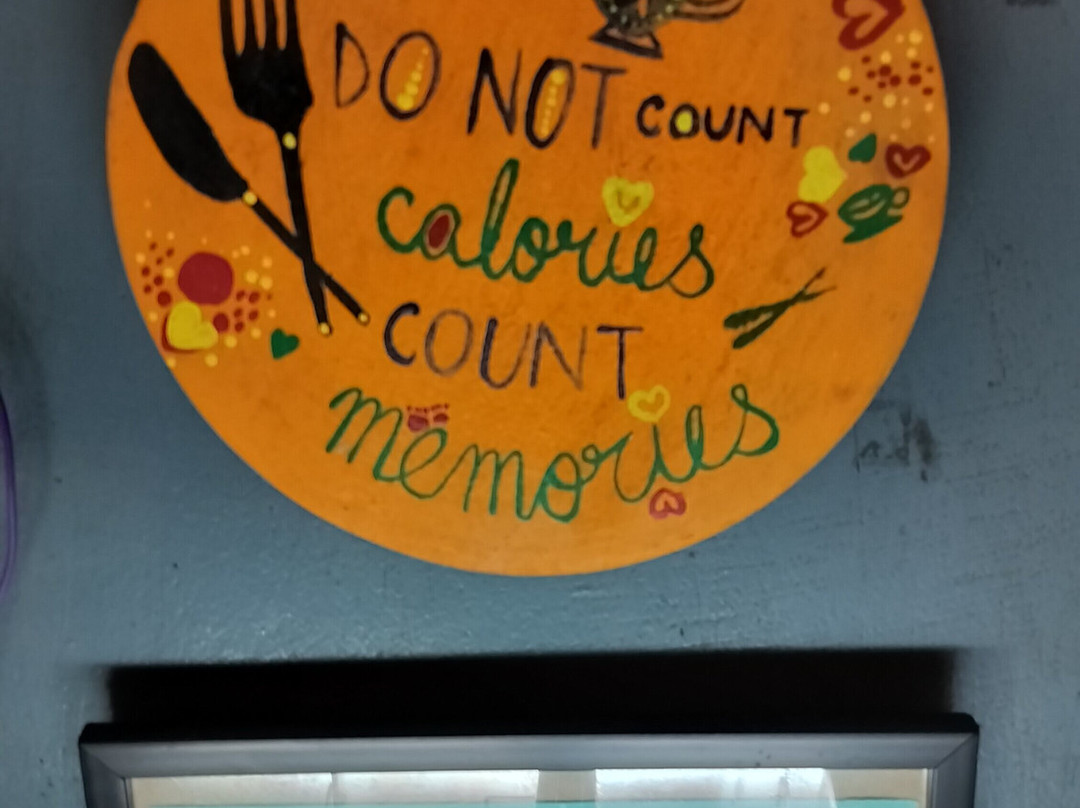 DO NOT COUNT
calories
COUNT
memories